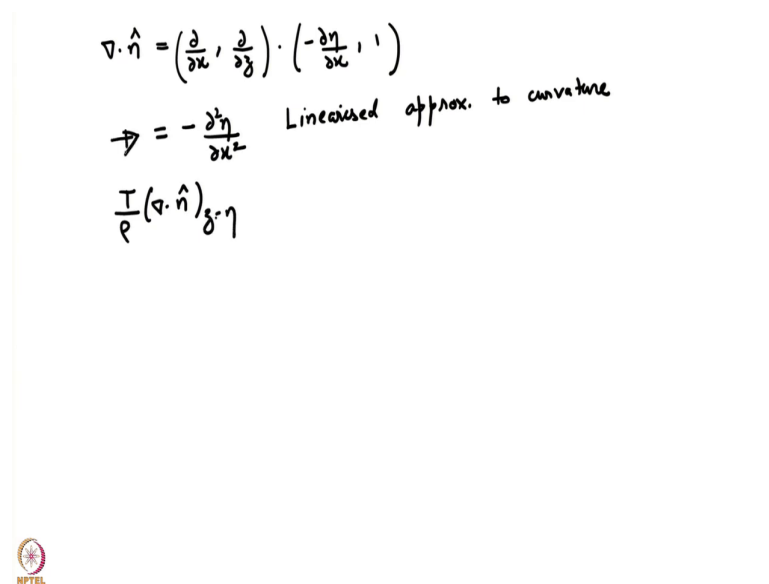 ∇. n̂ = (∂/∂x, ∂/∂z) · (-∂η/∂x, 1)
⇒ = - ∂²η/∂x² Linearised approx. to curvature
T/ρ (∇. n̂)_{z=η}
NPTEL